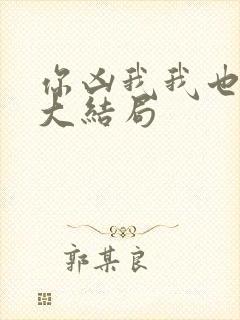 你凶我我也
大结局
郭某良